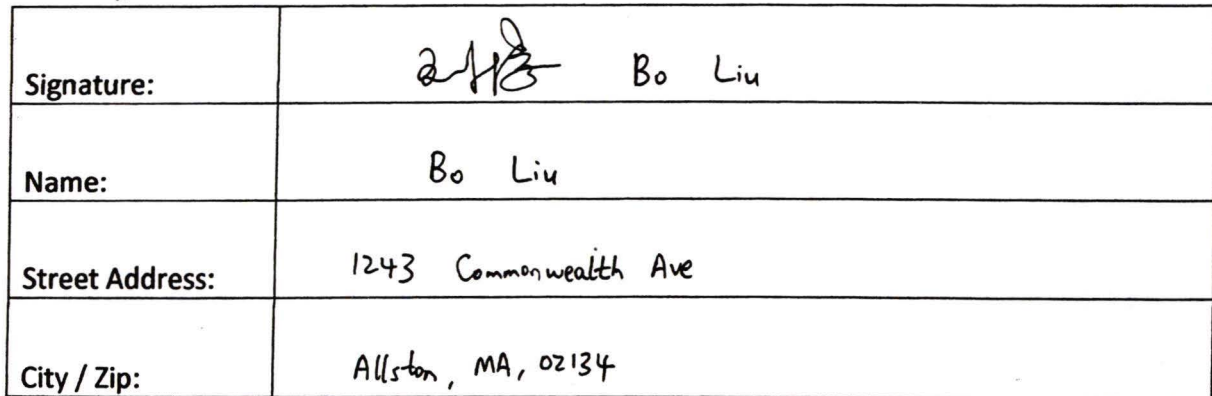 Signature: Bo Liu
Name: Bo Liu
Street Address: 1243 Commonwealth Ave
City / Zip: Allston, MA, 02134